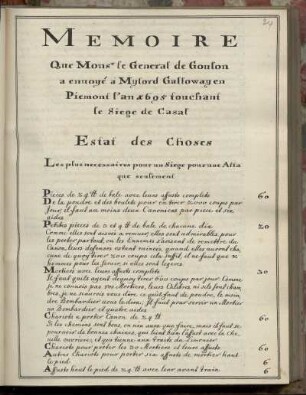 MEMOIRE
Que Mons.r le General de Gouson
a envoyé a Mylord Galloway en
Piemont l'an 1695 touchant
le Siege de Casal
Estat des Choses
Les plus necessaires pour un Siege pour une Atta
que seulement
Pieces de 24 tt de bale avec leurs affuts complets 60
De la poudre et des boulets pour en tirer 2000 coups par
Jour, il faut au moins deux Canoniers par piece et six
aides
Petites pieces de 2 et tt de bale de chacune dix 20
Comme elles sont aisées a mener, elles sont admirables pour
les porter partout, ou les Ennemis s'avisent de remettre du
Canon, leurs defenses estant ruinées, quand elles auront cha
cune de quoy tirer 200 coups cela suffit, il ne faut que
hommes pour les servir, si elles sont legeres
Mortiers avec leurs affuts complets 30
Il faut qu'ils ayent dequoy tirer 600 coups par jour Comme
je ne connois pas vos Mortiers, leurs Calibres ni de
bien, je ne saurois vous dire, ce qu'il faut de poudre, le nom
bre Bombardier vous le dira, Il faut pour servir un Mortier
un Bombardier et quatre aides
Chariots a porter Canon de 24 tt 60
Si les chemins sont bons, on n'en aura que faire, mais il faut se
pourvoir de bonnes chaines, qui lient bien l'affut avec la Che
ville ouvriere, et qui tienne aux Traits du
Chariots pour porter les 30 Mortiers et leurs affuts 60
Autres Chariots pour porter six affuts de mortier haut
le pied 6
Affuts haut le pied de 24 tt avec leur avant train 6